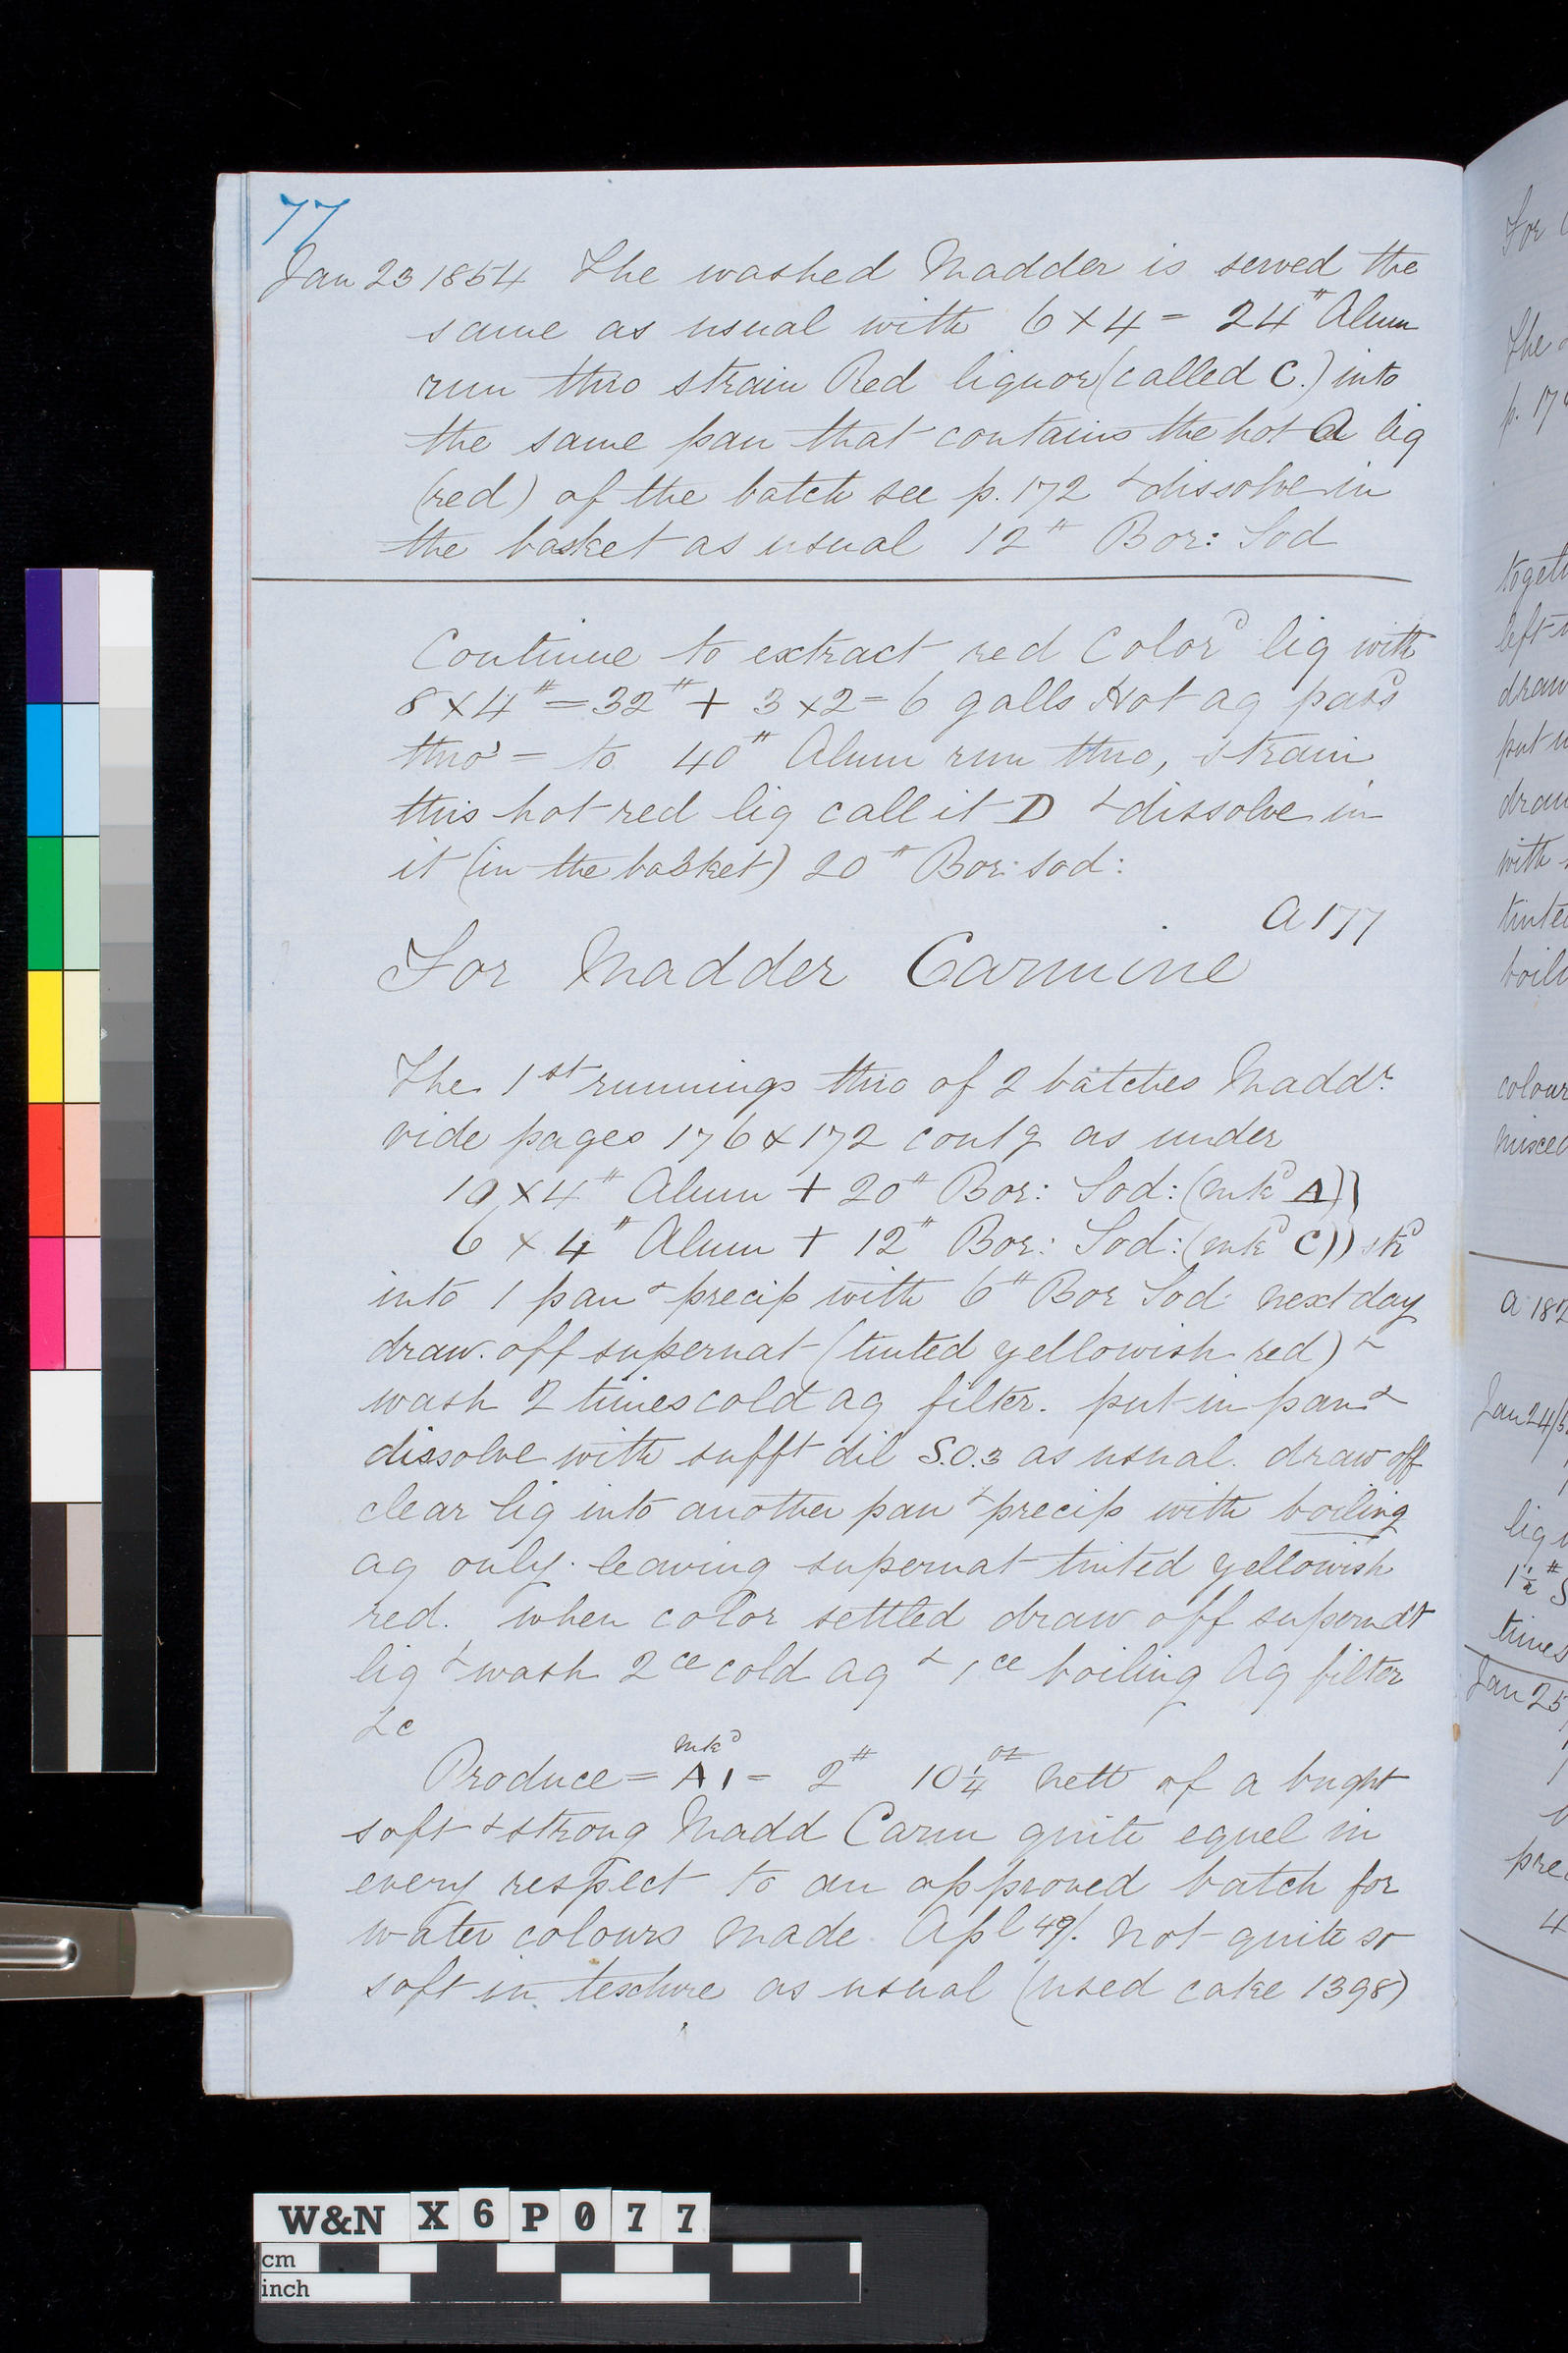 77
Jan 23 1854 The washed Madder is served the
same as usual with 6 x 4 = 24# Alum
run thro strain Red liquor (called C.) into
the same pan that contains the hot A liq
(red) of the batch see p. 172 & dissolve in
the basket as usual 12# Bor: Sod
Continue to extract red Colord liq with
8 x 4# = 32# + 3 x 2 = 6 galls Hot aq passd
thro' = to 40# Alum run thro, strain
this hot red liq call it D & dissolve in
it (in the basket) 20# Bor: Sod:
A 177
For Madder Carmine
The 1st runnings thro of 2 batches Maddr
vide pages 176 & 172 contg as under
10 x 4# Alum + 20# Bor: Sod: (mkd A))
6 x 4# Alum + 12# Bor: Sod: (mkd C)) std
into 1 pan & precip with 6# Bor Sod next day
draw off supernat (tinted yellowish red) &
wash 2 times cold aq filter. put in pan &
dissolve with sufft dil S.O.3 as usual. draw off
clear liq into another pan & precip with boiling
aq only. leaving supernat tinted yellowish
red. when color settled draw off supernat
liq & wash 2ce cold aq & 1ce boiling Aq filter
&c
mkd
Produce = A1 = 2# 10 1/4 oz nett of a bright
soft & strong Madd Carm quite equel in
every respect to an approved batch for
water colours made Apl 49/. Not quite so
soft in texture as usual (used cake 1398)
For
The
p. 17
togeth
left
draw
put
draw
with
tinted
boili
colour
Miscel
A 182
Jan 24/5
liq
1 1/2 # S
times
Jan 25
pre
4
W&N X 6 P 0 7 7
cm
inch